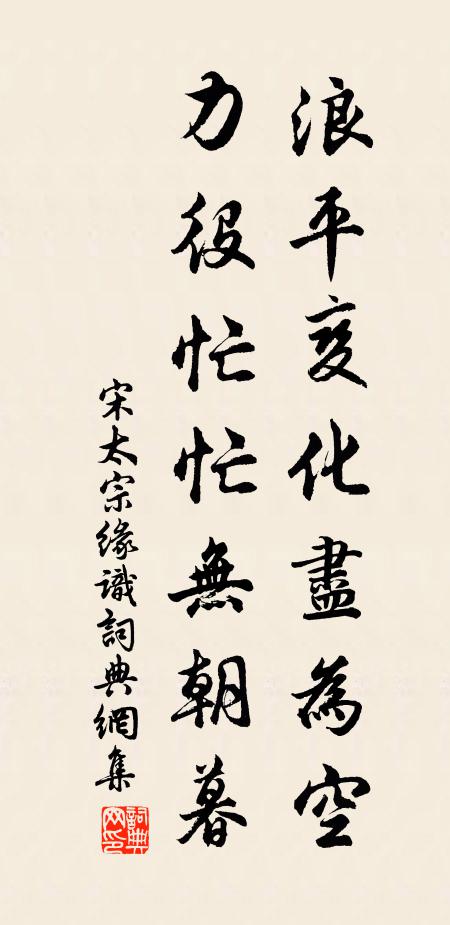 浪平变化盡為空
力役忙忙無朝暮
宋太宗緣識詞典網集
詞典网印